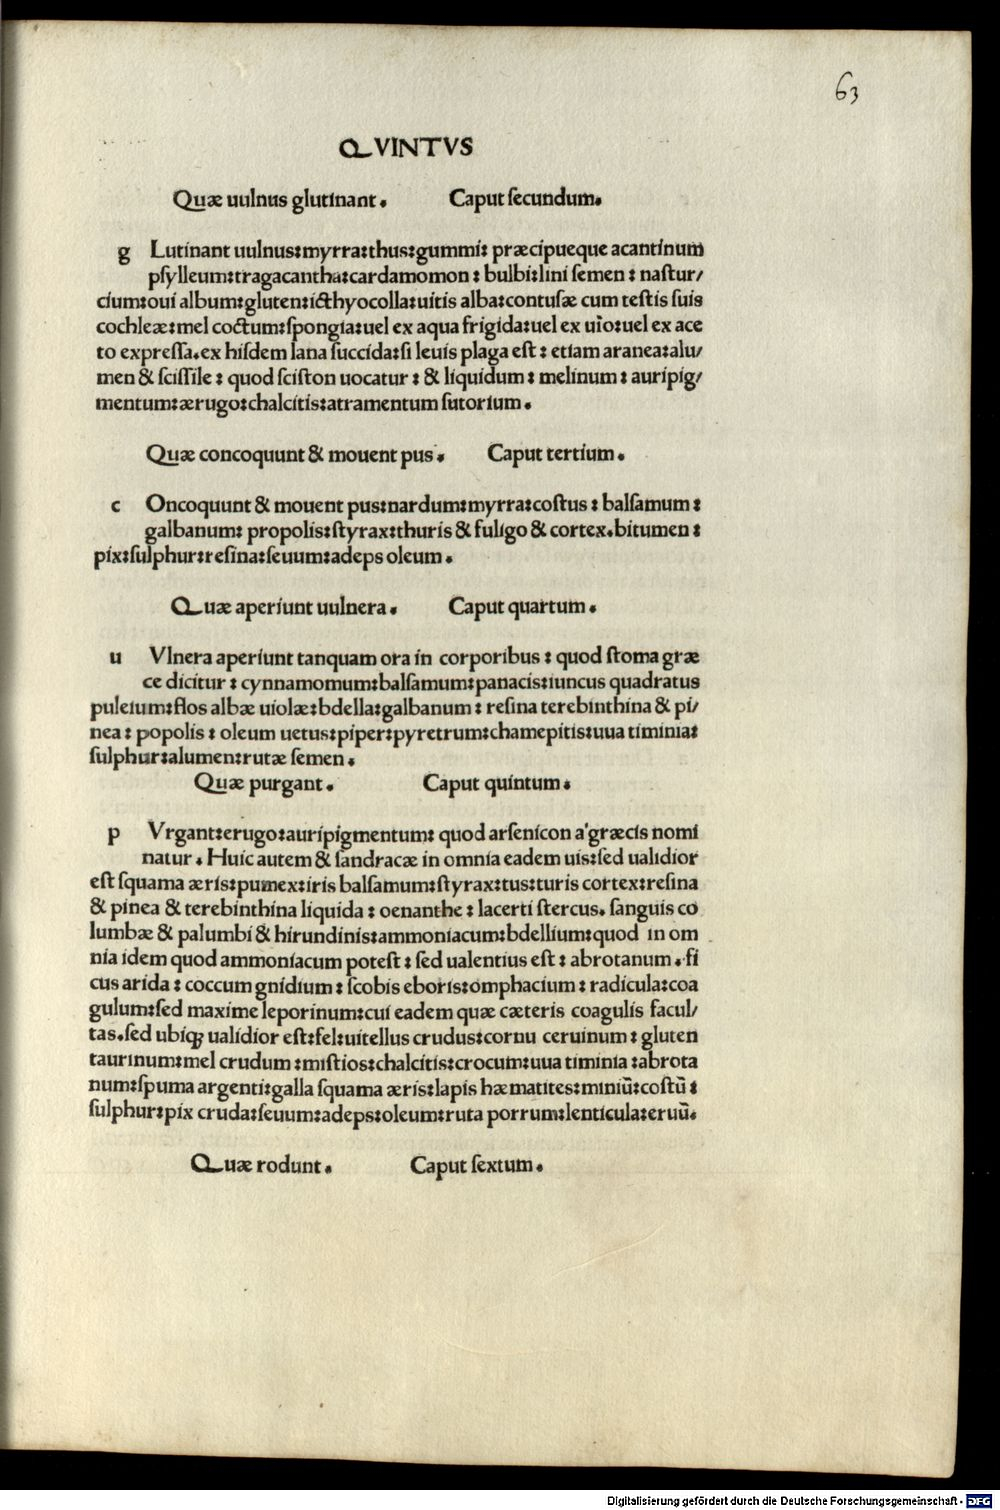 63
QVINTVS
Quæ uulnus glutinant. Caput ſecundum.
g Lutinant uulnus:myrra:thus:gummi: præcipueque acantinum
pſylleum:tragacantha:cardamomon : bulbi:lini ſemen : naſtur/
cium:oui album:gluten:icthyocolla:uitis alba:contuſæ cum teſtis ſuis
cochleæ:mel coctum:ſpongia:uel ex aqua frigida:uel ex uīo:uel ex ace
to expreſſa.ex hiſdem lana ſuccida:ſi leuis plaga eſt : etiam aranea:alu/
men & ſciſſile : quod ſciſton uocatur : & liquidum : melinum : auripig/
mentum:ærugo:chalcitis:atramentum ſutorium.
Quæ concoquunt & mouent pus. Caput tertium.
c Oncoquunt & mouent pus:nardum:myrra:coſtus : balſamum :
galbanum: propolis:ſtyrax:thuris & fuligo & cortex.bitumen :
pix:ſulphur:reſina:ſeuum:adeps oleum.
Quæ aperiunt uulnera. Caput quartum.
u Vlnera aperiunt tanquam ora in corporibus : quod ſtoma græ
ce dicitur : cynnamomum:balſamum:panacis:iuncus quadratus
puleium:flos albæ uiolæ:bdella:galbanum : reſina terebinthina & pi/
nea : popolis : oleum uetus:piper:pyretrum:chamepitis:uua timinia:
ſulphur:alumen:rutæ ſemen.
Quæ purgant. Caput quintum.
p Vrgant:erugo:auripigmentum: quod arſenicon a'græcis nomi
natur. Huic autem & ſandracæ in omnia eadem uis:ſed ualidior
eſt ſquama æris:pumex:iris balſamum:ſtyrax:tus:turis cortex:reſina
& pinea & terebinthina liquida : oenanthe : lacerti ſtercus. ſanguis co
lumbæ & palumbi & hirundinis:ammoniacum:bdellium:quod in om
nia idem quod ammoniacum poteſt : ſed ualentius eſt : abrotanum.fi
cus arida : coccum gnidium : ſcobis eboris:omphacium : radicula:coa
gulum:ſed maxime leporinum:cui eadem quæ cæteris coagulis facul/
tas.ſed ubiqꝫ ualidior eſt:fel:uitellus crudus:cornu ceruinum : gluten
taurinum:mel crudum : miſtios:chalcitis:crocum:uua timinia :abrota
num:ſpuma argenti:galla ſquama æris:lapis hæmatites:miniū:coſtū :
ſulphur:pix cruda:ſeuum:adeps:oleum:ruta porrum:lenticula:eruū.
Quæ rodunt. Caput ſextum.
Digitalisierung gefördert durch die Deutsche Forschungsgemeinschaft - DFG